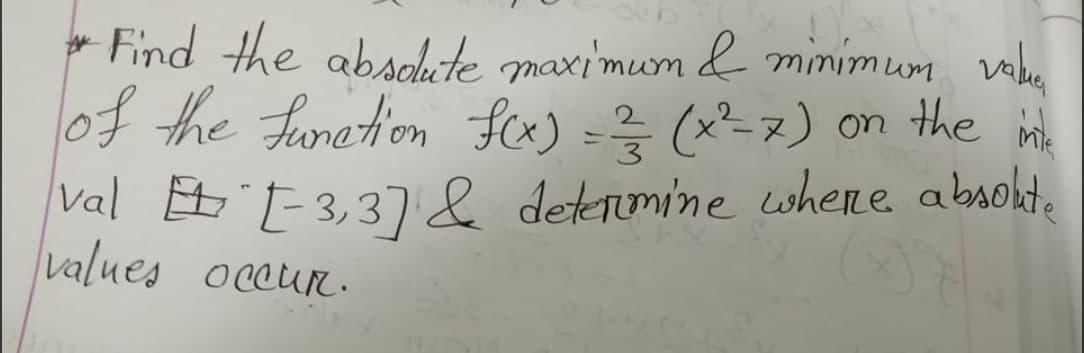 * Find the absolute maximum & minimum value
of the function f(x) = 2/3 (x²-x) on the inte
val [-3,3] & determine where absolute
values occur.